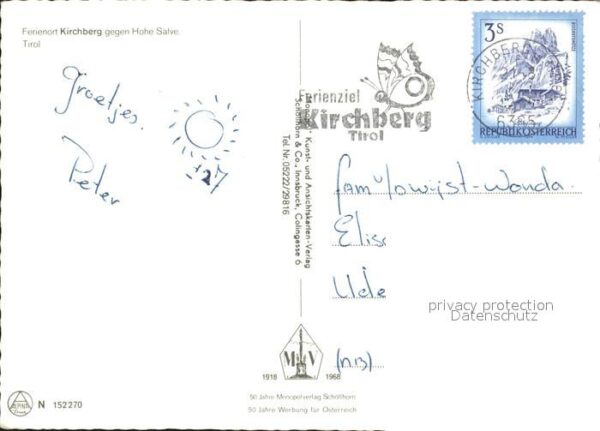 Ferienort Kirchberg gegen Hohe Salve
Tirol
Groetjes.
Peter
+27
Ferienziel
Kirchberg
Tirol
3S
KIRCHBERG
6365
REPUBLIK ÖSTERREICH
Kunst- und Ansichtskarten-Verlag
Schöllhorn & Co., Innsbruck, Colingasse 6
Tel. Nr. 05222/29816
Elise
Ude
(NB)
privacy protection
Datenschutz
M V
1918 1968
50 Jahre Monopolverlag Schöllhorn
50 Jahre Werbung für Österreich
N 152270